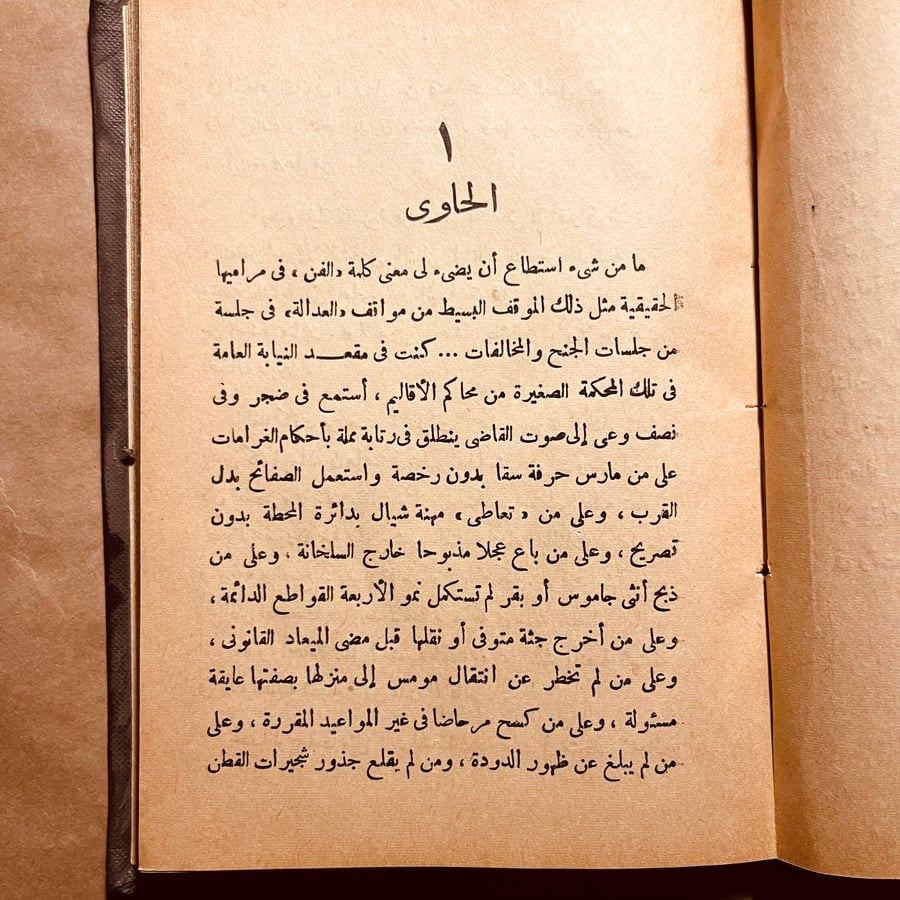 ١
الحاوى
ما من شىء استطاع أن يضىء لى معنى كلمة «الفن» فى مراميها
الحقيقية مثل ذلك الموقف البسيط من مواقف «العدالة» فى جلسة
من جلسات الجنح والمخالفات ... كنت فى مقعد النيابة العامة
فى تلك المحكمة الصغيرة من محاكم الأقاليم ، أستمع فى ضجر وفى
نصف وعى إلى صوت القاضى ينطلق فى رتابة مملة بأحكام الغرامات
على من مارس حرفة سقا بدون رخصة واستعمل الصفائح بدل
القرب ، وعلى من «تعاطى» مهنة شيال بدائرة المحطة بدون
تصريح ، وعلى من باع عجلا مذبوحا خارج السلخانة ، وعلى من
ذبح أنثى جاموس أو بقر لم تستكمل نمو الأربعة القواطع الدائمة ،
وعلى من أخرج جثة متوفى أو نقلها قبل مضى الميعاد القانونى ،
وعلى من لم تخطر عن انتقال مومس إلى منزلها بصفتها عايقة
مسئولة ، وعلى من كسح مرحاضا فى غير المواعيد المقررة ، وعلى
من لم يبلغ عن ظهور الدودة ، ومن لم يقلع جذور شجيرات القطن